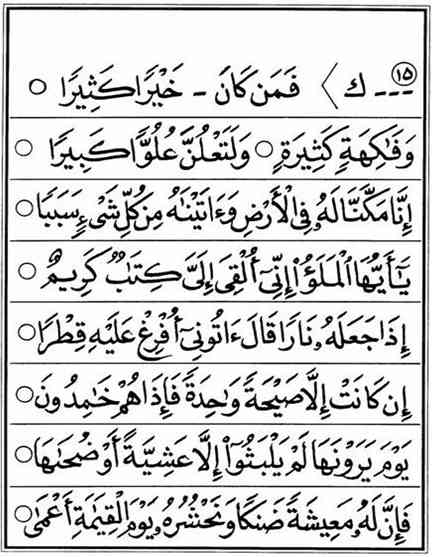 ١٥
--- ك 〉 فَمَن كَانَ - خَيْرًا كَثِيرًا ○
وَفَٰكِهَةٍ كَثِيرَةٍ ○ وَلَتَعْلُنَّ عُلُوًّا كَبِيرًا ○
إِنَّا مَكَّنَّا لَهُۥ فِى ٱلْأَرْضِ وَءَاتَيْنَٰهُ مِن كُلِّ شَىْءٍ سَبَبًا ○
يَٰٓأَيُّهَا ٱلْمَلَؤُا۟ إِنِّىٓ أُلْقِىَ إِلَىَّ كِتَٰبٌ كَرِيمٌ ○
إِذَا جَعَلَهُۥ نَارًا قَالَ ءَاتُونِىٓ أُفْرِغْ عَلَيْهِ قِطْرًا ○
إِن كَانَتْ إِلَّا صَيْحَةً وَٰحِدَةً فَإِذَا هُمْ خَٰمِدُونَ ○
يَوْمَ يَرَوْنَهَا لَمْ يَلْبَثُوٓا۟ إِلَّا عَشِيَّةً أَوْ ضُحَىٰهَا ○
فَإِنَّ لَهُۥ مَعِيشَةً ضَنكًا وَنَحْشُرُهُۥ يَوْمَ ٱلْقِيَٰمَةِ أَعْمَىٰ ○